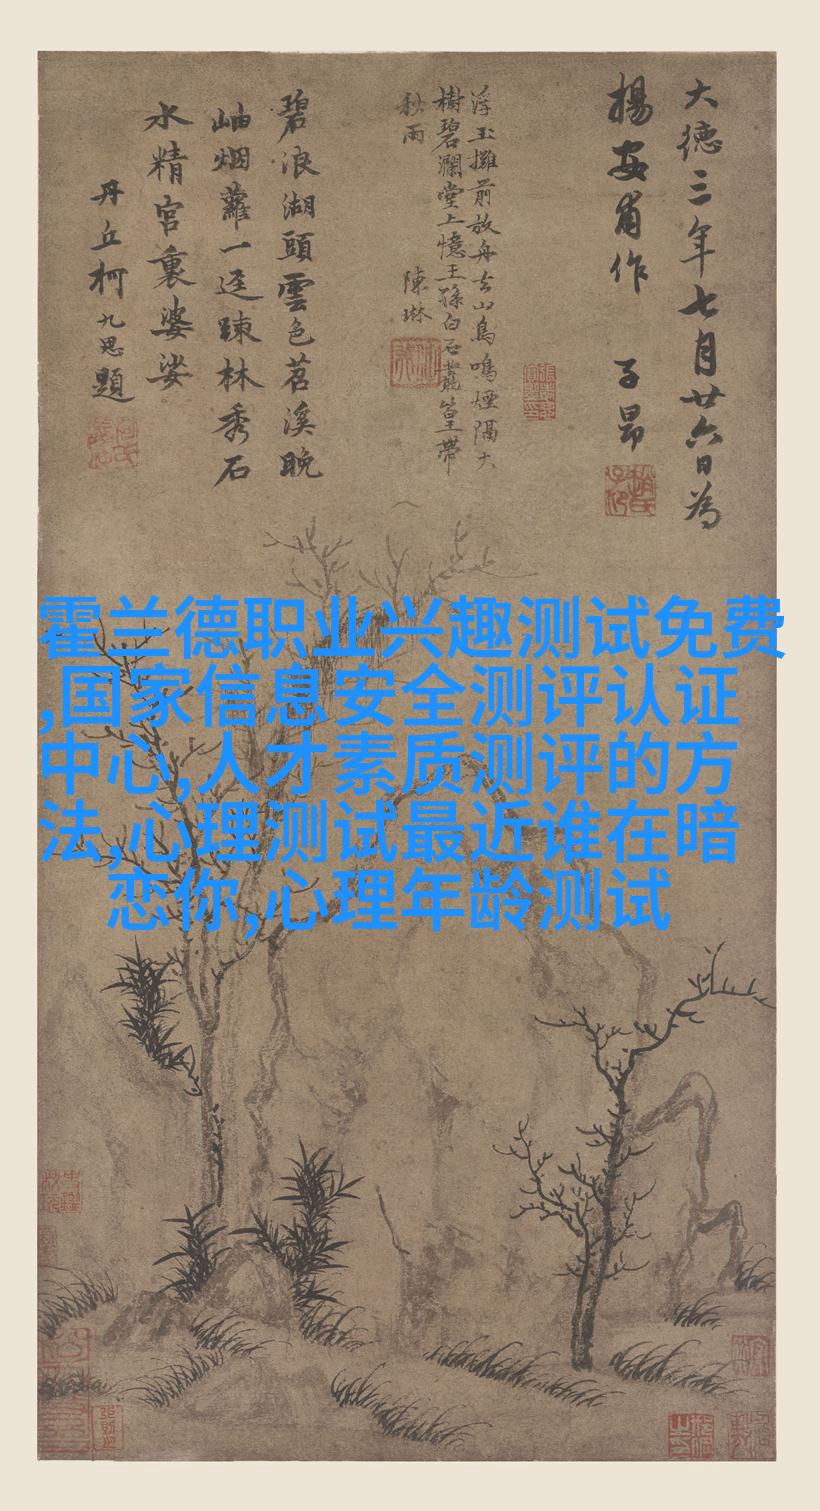 大德三年七月廿六日為
楊安甫作 子昂
浮玉攤前放舟去山鳥鳴煙隔大
樹碧瀾堂上憶王孫白石叢篁帶
秋雨 陳琳
碧浪湖頭雲色苕溪晚
岫烟蘿一逕踈林秀石
水精宮裏婆娑
丹丘柯九思題
霍兰德职业兴趣测试免费
,国家信息安全测评认证
中心,人才素质测评的方
法,心理测试最近谁在暗
恋你,心理年龄测试